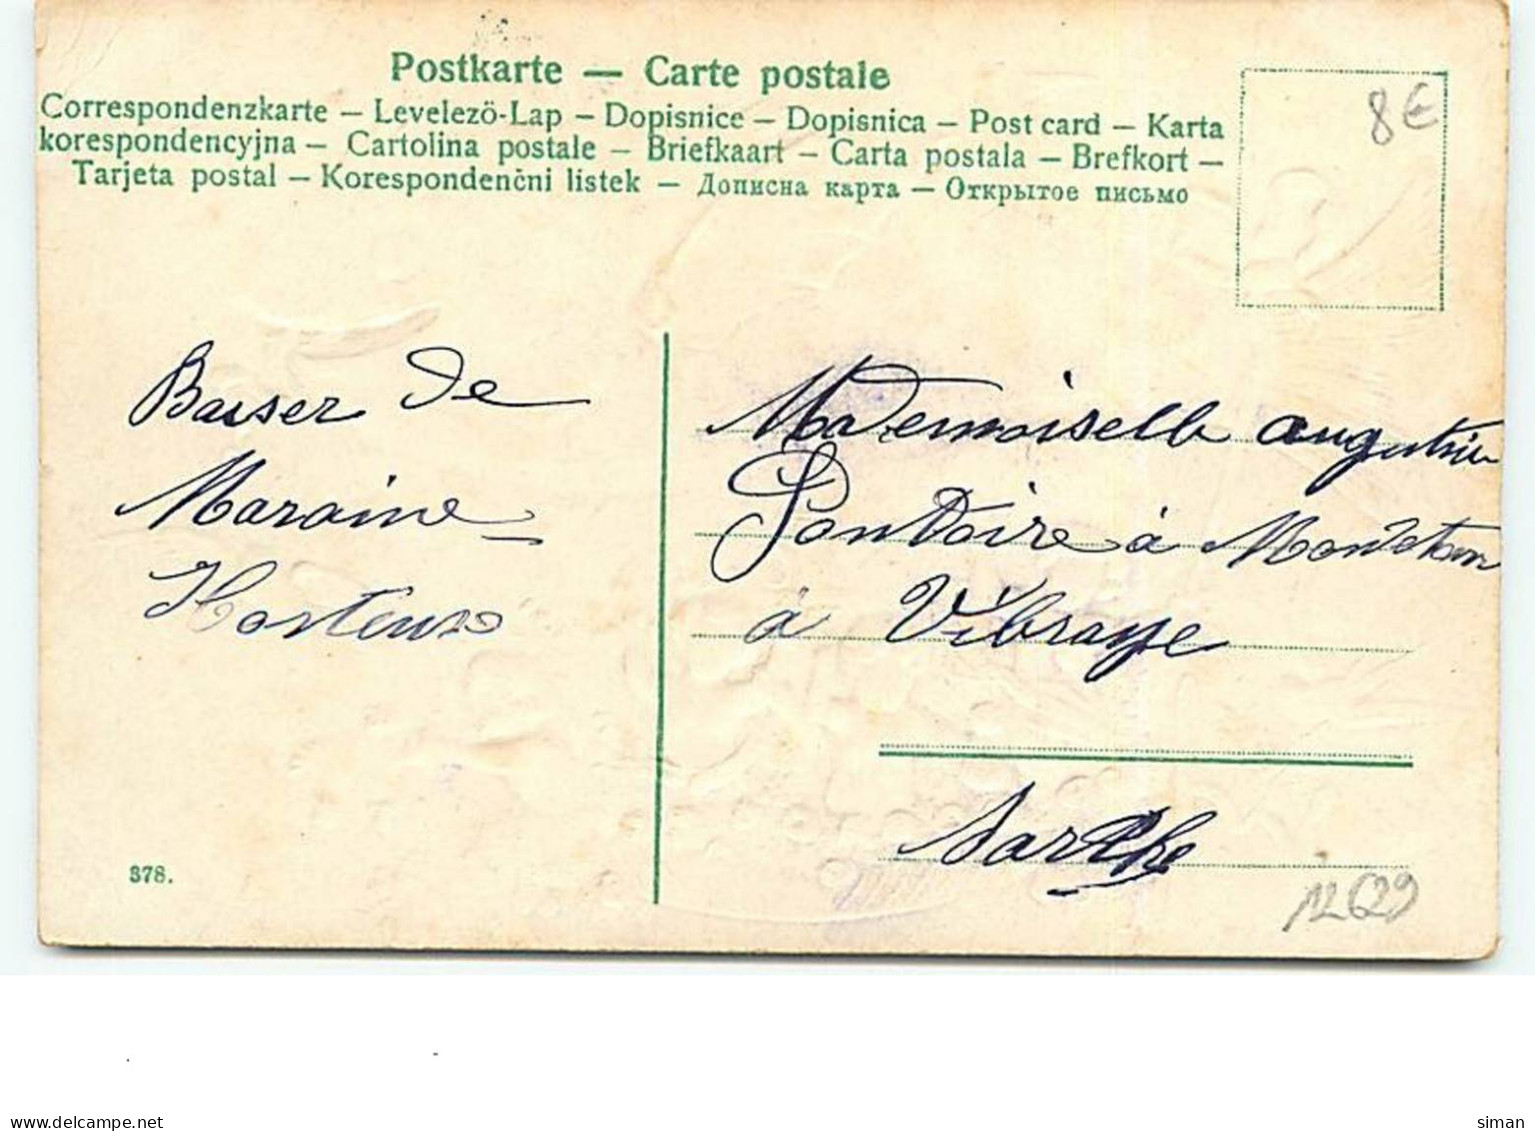 Postkarte — Carte postale
Correspondenzkarte – Levelezö-Lap – Dopisnice – Dopisnica – Post card – Karta
korespondencyjna – Cartolina postale – Briefkaart – Carta postala – Brefkort –
Tarjeta postal – Korespondenčni listek – Дописна карта – Открытое письмо
8€
Baiser de
Maraine
Hortense
Mademoiselle Augustine
Pontoire à
à Vibraye
Sarthe
378.
12629
www.delcampe.net
siman